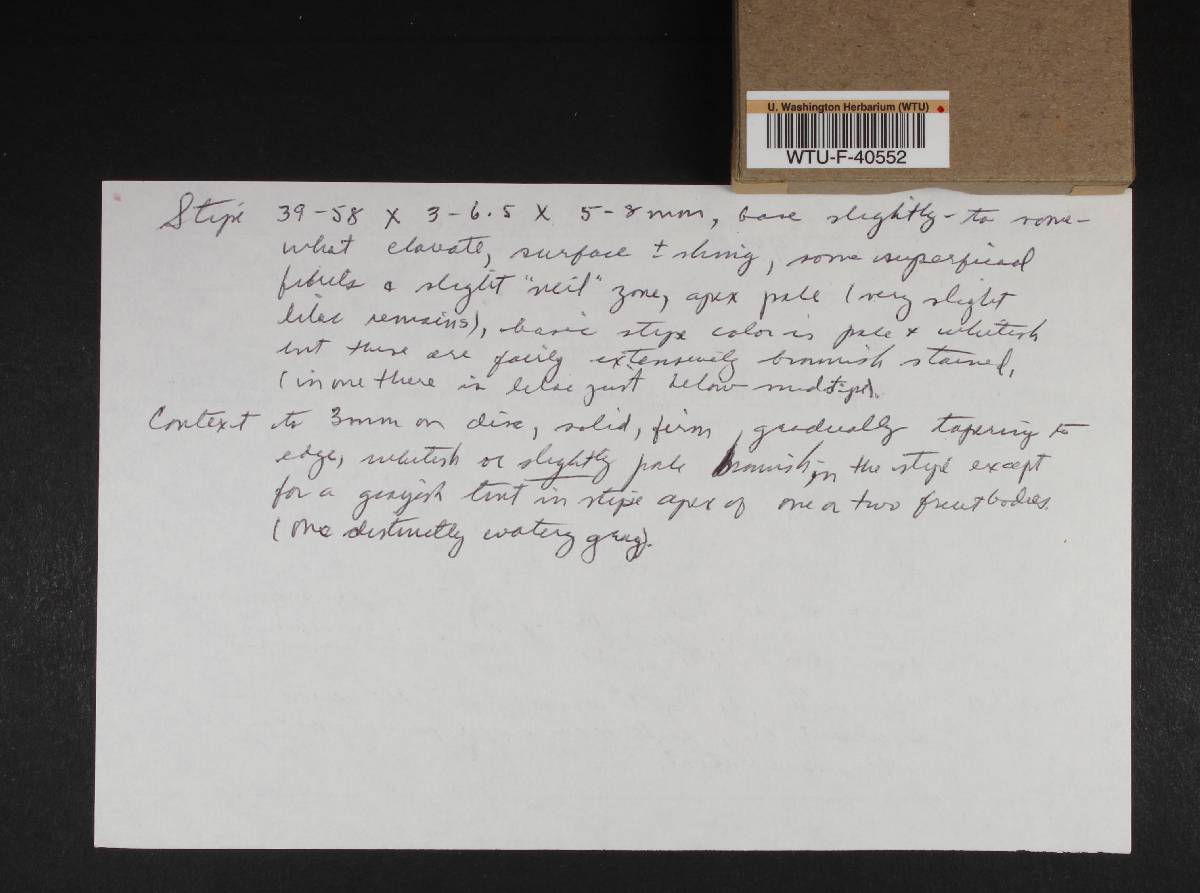 U. Washington Herbarium (WTU)
WTU-F-40552
Stipe 39-58 X 3-6.5 X 5-8mm, base slightly- to some-
what clavate, surface ± shining, some superficial
fibrils & slight "veil" zone, apex pale (very slight
lilac remains), basic stipe color is pale & whitish
but these are fairly extensively brownish stained,
(in one there is lilac just below midstipe).
Context to 3mm on disc, solid, firm, gradually tapering to
edge, whitish or slightly pale brownish, in the stipe except
for a grayish tint in stipe apex of one or two fruitbodies.
(one distinctly watery gray).